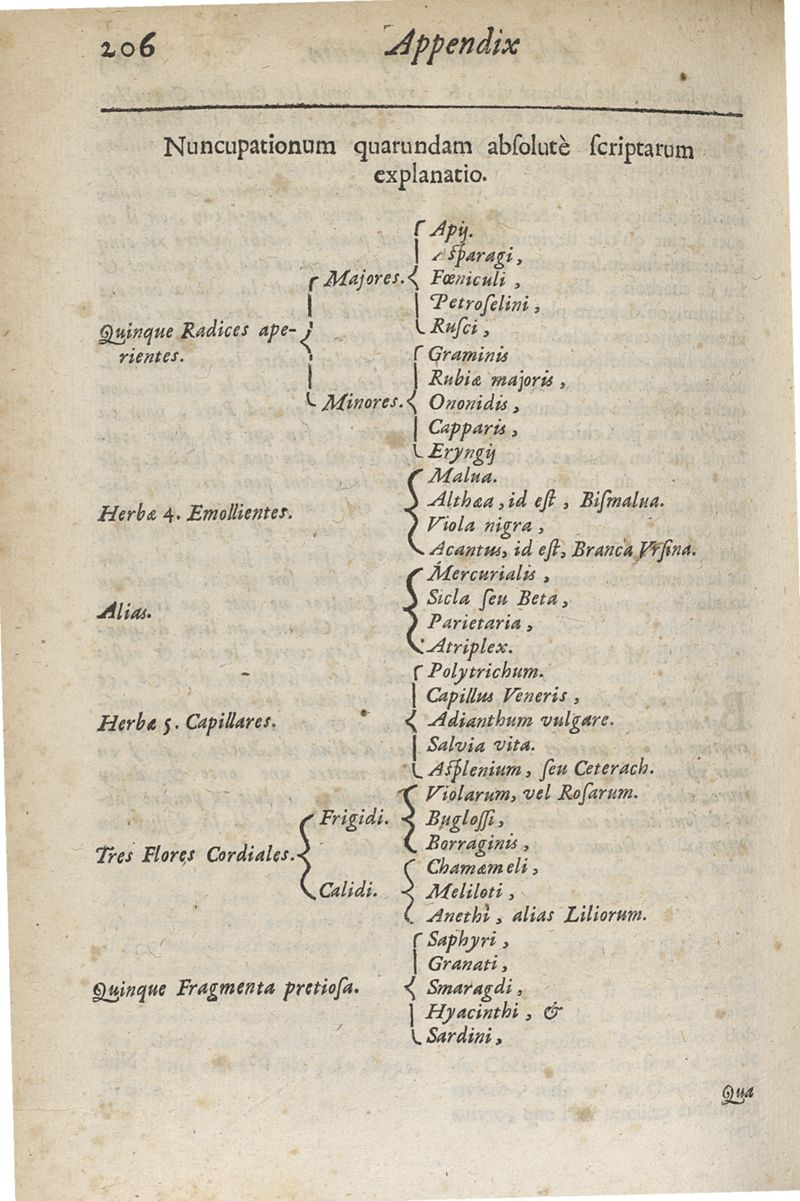 206 Appendix
Nuncupationum quarundam absolutè scriptarum
explanatio.
Apij.
Asparagi,
Majores. Fœniculi,
Petroselini,
Rusci,
Quinque Radices ape-
rientes.
Graminis
Rubiæ majoris,
Minores. Ononidis,
Capparis,
Eryngij
Malua.
Althæa, id est, Bismalua.
Herbæ 4. Emollientes.
Viola nigra,
Acantus, id est, Branca Vrsina.
Mercurialis,
Sicla seu Beta,
Alias.
Parietaria,
Atriplex.
Polytrichum.
Capillus Veneris,
Herbæ 5. Capillares. Adianthum vulgare.
Salvia vita.
Asplenium, seu Ceterach.
Violarum, vel Rosarum.
Frigidi. Buglossi,
Borraginis,
Tres Flores Cordiales.
Chamæmeli,
Calidi. Meliloti,
Anethi, alias Liliorum.
Saphyri,
Granati,
Quinque Fragmenta pretiosa. Smaragdi,
Hyacinthi, &
Sardini,
Qua